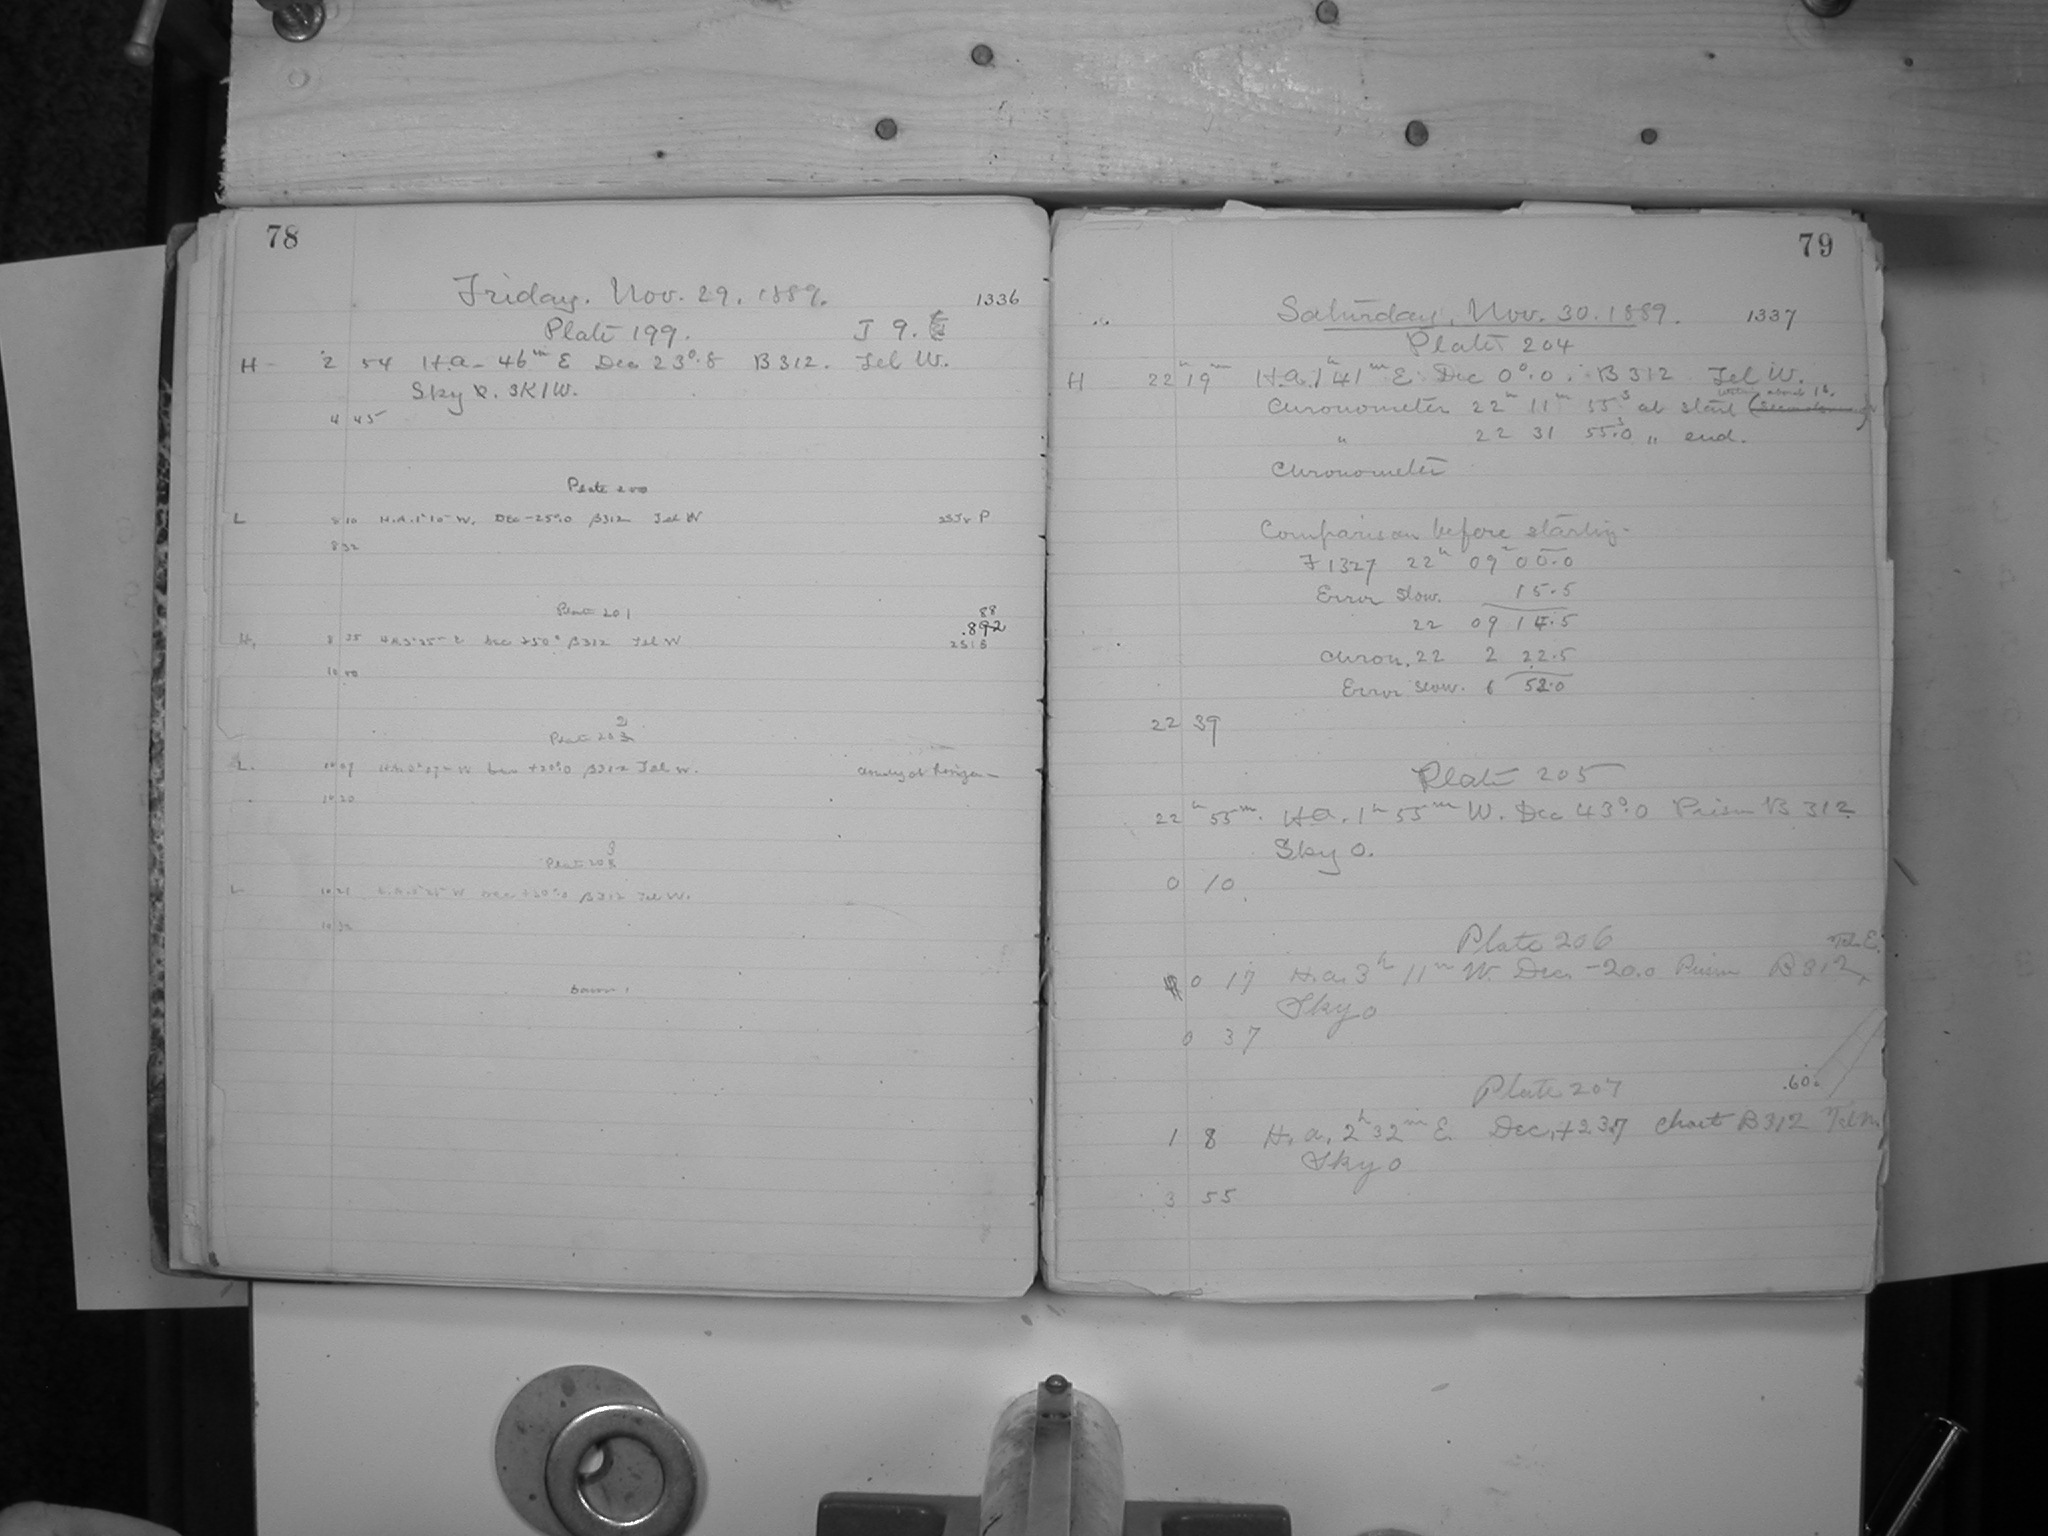 78
Friday. Nov. 29. 1889. 1336
Plate 199. J 9.
H 2 54 H.a. 46m E Dec 23°.8 B312. Tel W.
Sky 2. 3K1W.
4 45
Plate 200
L 8 10 H.A. 1h10m W. Dec -25°.0 B312 Tel W P
8 32
Plate 201 88
.892
H. 8 35 H.A. 3h25m E Dec +50° B312 Tel W 2515
10 00
Plate 202
L. 10 07 W Dec +20°.0 B312 Tel W. cloudy at horizon
10 20
Plate 203
L 10 21 W Dec +30°.0 B312 Tel W.
10 32
79
Saturday, Nov. 30. 1889. 1337
Plate 204
H 22h 19m H.a. 1h 41m E Dec 0°.0. B 312 Tel W.
Chronometer 22h 11m 55s at start (within about 1s.)
" 22 31 55s.0 " end.
Chronometer
Comparison before starting
F1327 22h 09m 00.0
Error slow. 15.5
22 09 15.5
Chron. 22 2 22.5
Error slow. 6 52.0
22 39
Plate 205
22h 55m. H.a. 1h 55m W. Dec 43°.0 Prism B 312
Sky 0.
0 10
Plate 206 Tel. E.
0 17 H.a. 3h 11m W. Dec. -20.0 Prism B 312
Sky 0
0 37
Plate 207 .60
1 8 H.a. 2h 32m E. Dec. +23.7 Chart B 312 Tel W.
Sky 0
3 55